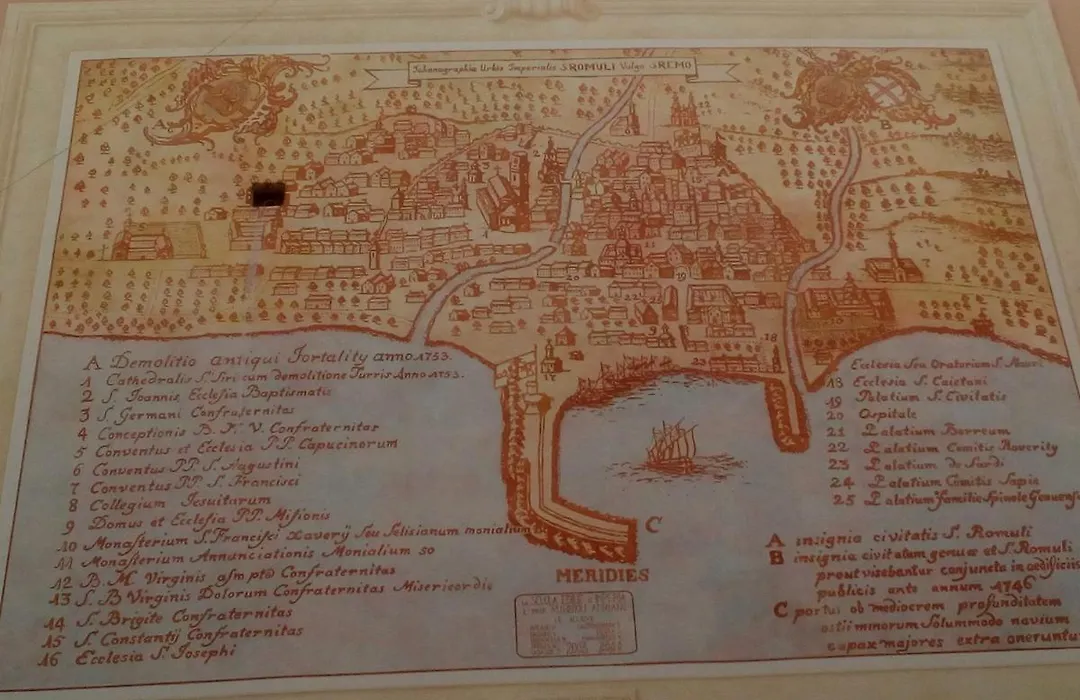 Ichonographia Urbis Imperialis S.ROMULI Vulgo SREMO
A Demolitio antiqui Fortality anno 1753.
1 Cathedralis S. Siri cum demolitione Turris Anno 1753.
2 S. Ioannis Ecclesia Baptismatis
3 S. Germani Confraternitas
4 Conceptionis B. M. V. Confraternitas
5 Conventus et Ecclesia PP. Capucinorum
6 Conventus PP. S. Augustini
7 Conventus PP. S. Francisci
8 Collegium Iesuitarum
9 Domus et Ecclesia PP. Misionis
10 Monasterium S. Francisci Xavery seu Felicianum monialium
11 Monasterium Annunciationis Monialium so
12 B. M. Virginis Confraternitas
13 S. B Virginis Dolorum Confraternitas Misericordie
14 S. Brigite Confraternitas
15 S. Constantij Confraternitas
16 Ecclesia S. Josephi
Ecclesia seu Oratorium S.
18 Ecclesia S. Caietani
19 Palatium S. Civitatis
20 Ospitale
21 Palatium Borreum
22 Palatium Comitis Roverity
23 Palatium de Sardi
24 Palatium Comitis Sapia
25 Palatium Familie Spinole
A insignia civitatis S. Romuli
B insignia civitatum genuæ et S. Romuli
prout visebantur conjuncta in aedificiis
publicis ante annum 1746
C portus ob mediocrem profunditatem
ostii minorum solummodo navium
capax majores extra
C
MERIDIES
2005